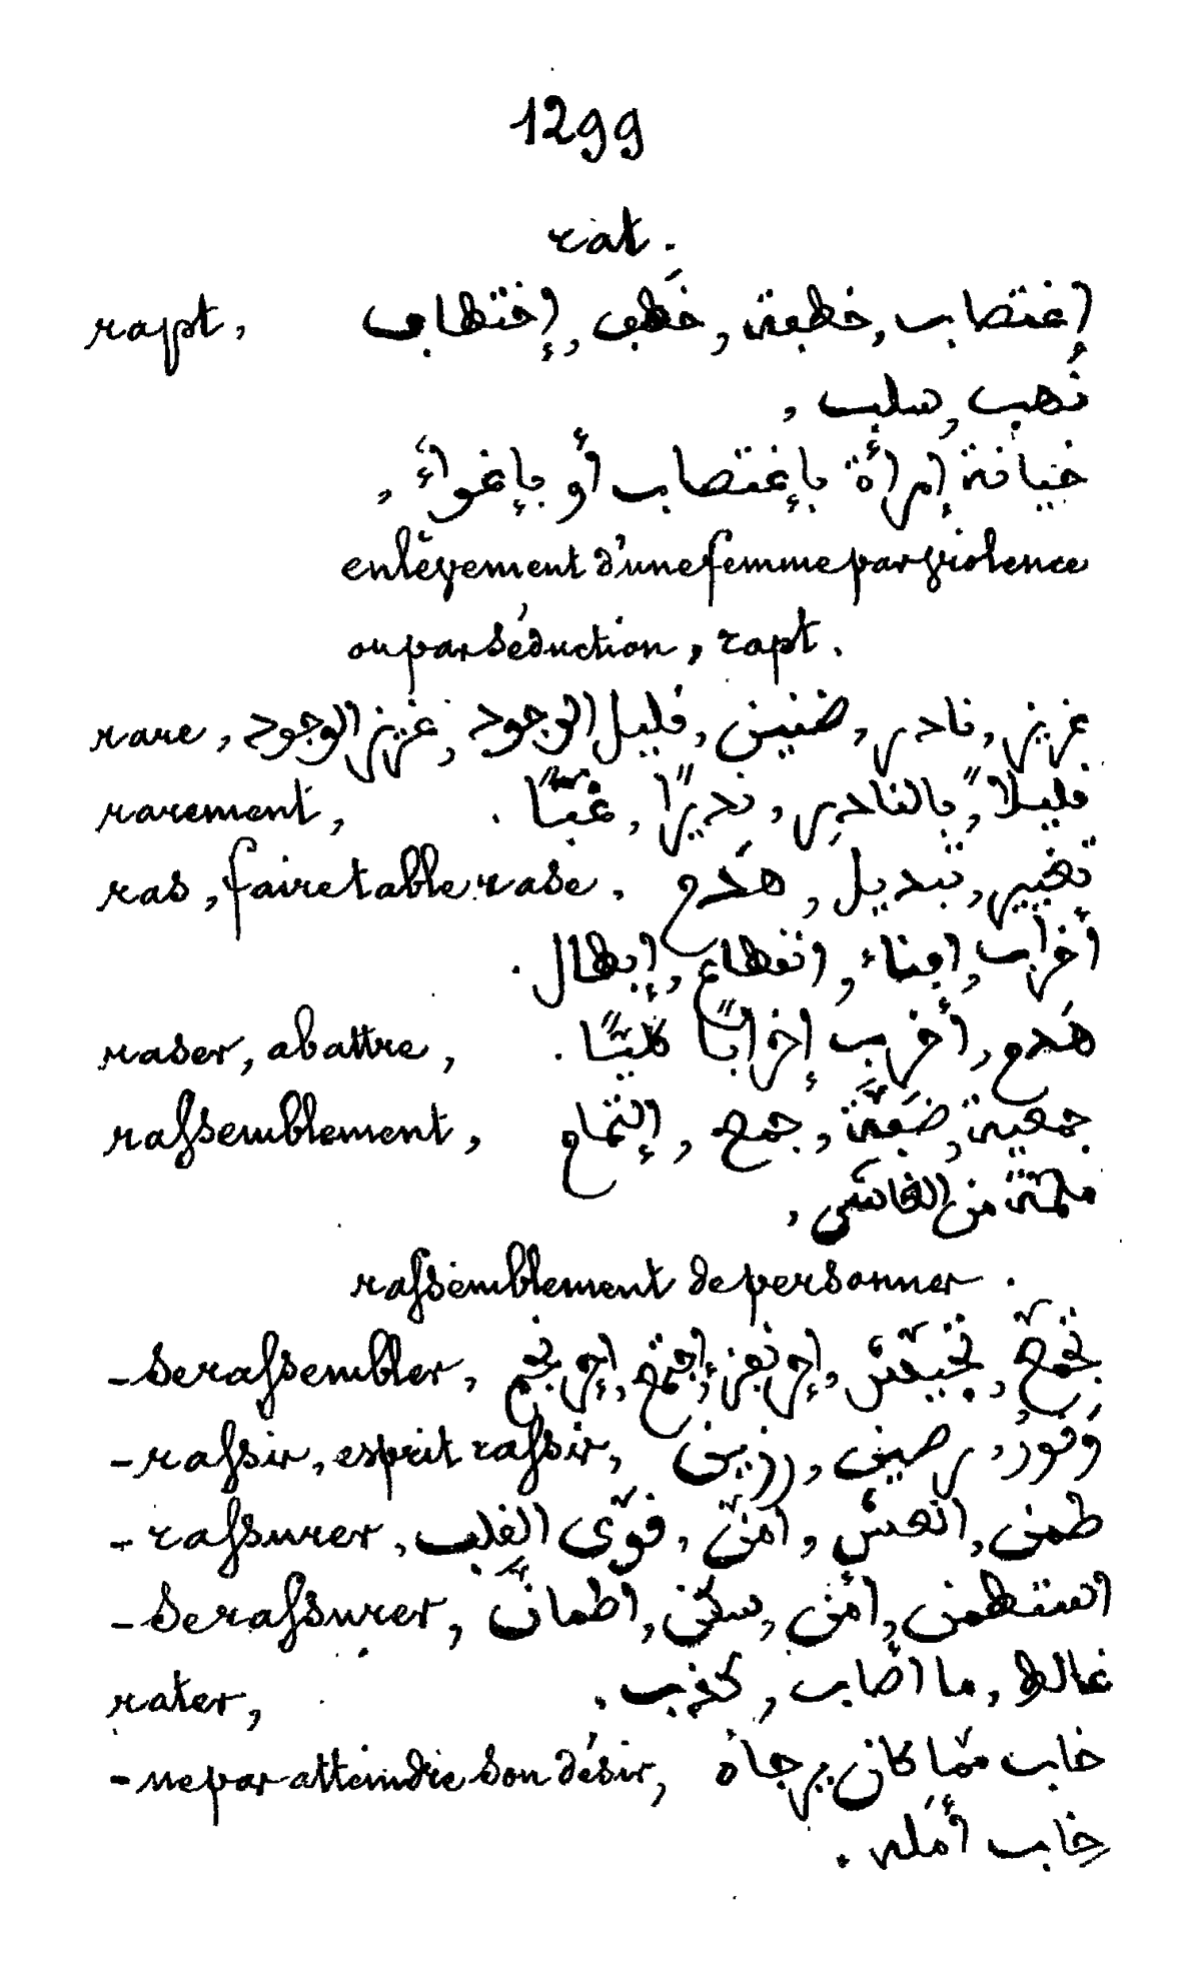 1299
rat.
rapt, إغتصاب, خطفة, خَطف, إختطاف
نُهب, سلب,
خيانة إمرأة بإغتصاب أو بإغواءً,
enlèvement d'une femme par violence
ou par séduction, rapt.
rare, عزيز, نادر, ضنين, قليل الوجود, عزيز الوجود
rarement, قليلاً, بالنادر, ندرًا, غبًّا.
ras, faire table rase, تغيير, تبديل, هَدم
أخراب, افناء, انقطاع, إبطال.
raser, abattre, هَدم, أخرب إخرابًا كليًّا.
rassemblement, جمعية, جمع, إلتمام
من الغاشي,
rassemblement de personner.
- se rassembler, تجمّع, إجتمع
- rassir, esprit rassir, وَقور, رصين, رزين
- rassurer, طمن, انعش, امّن, قوّى القلب
- se rassurer, استطمن, امن, سكن, اطمانّ
rater, غالط, ما اصاب, كذب.
- ne par atteindre son désir, خاب ممّا كان يرجاه
خاب أمله.